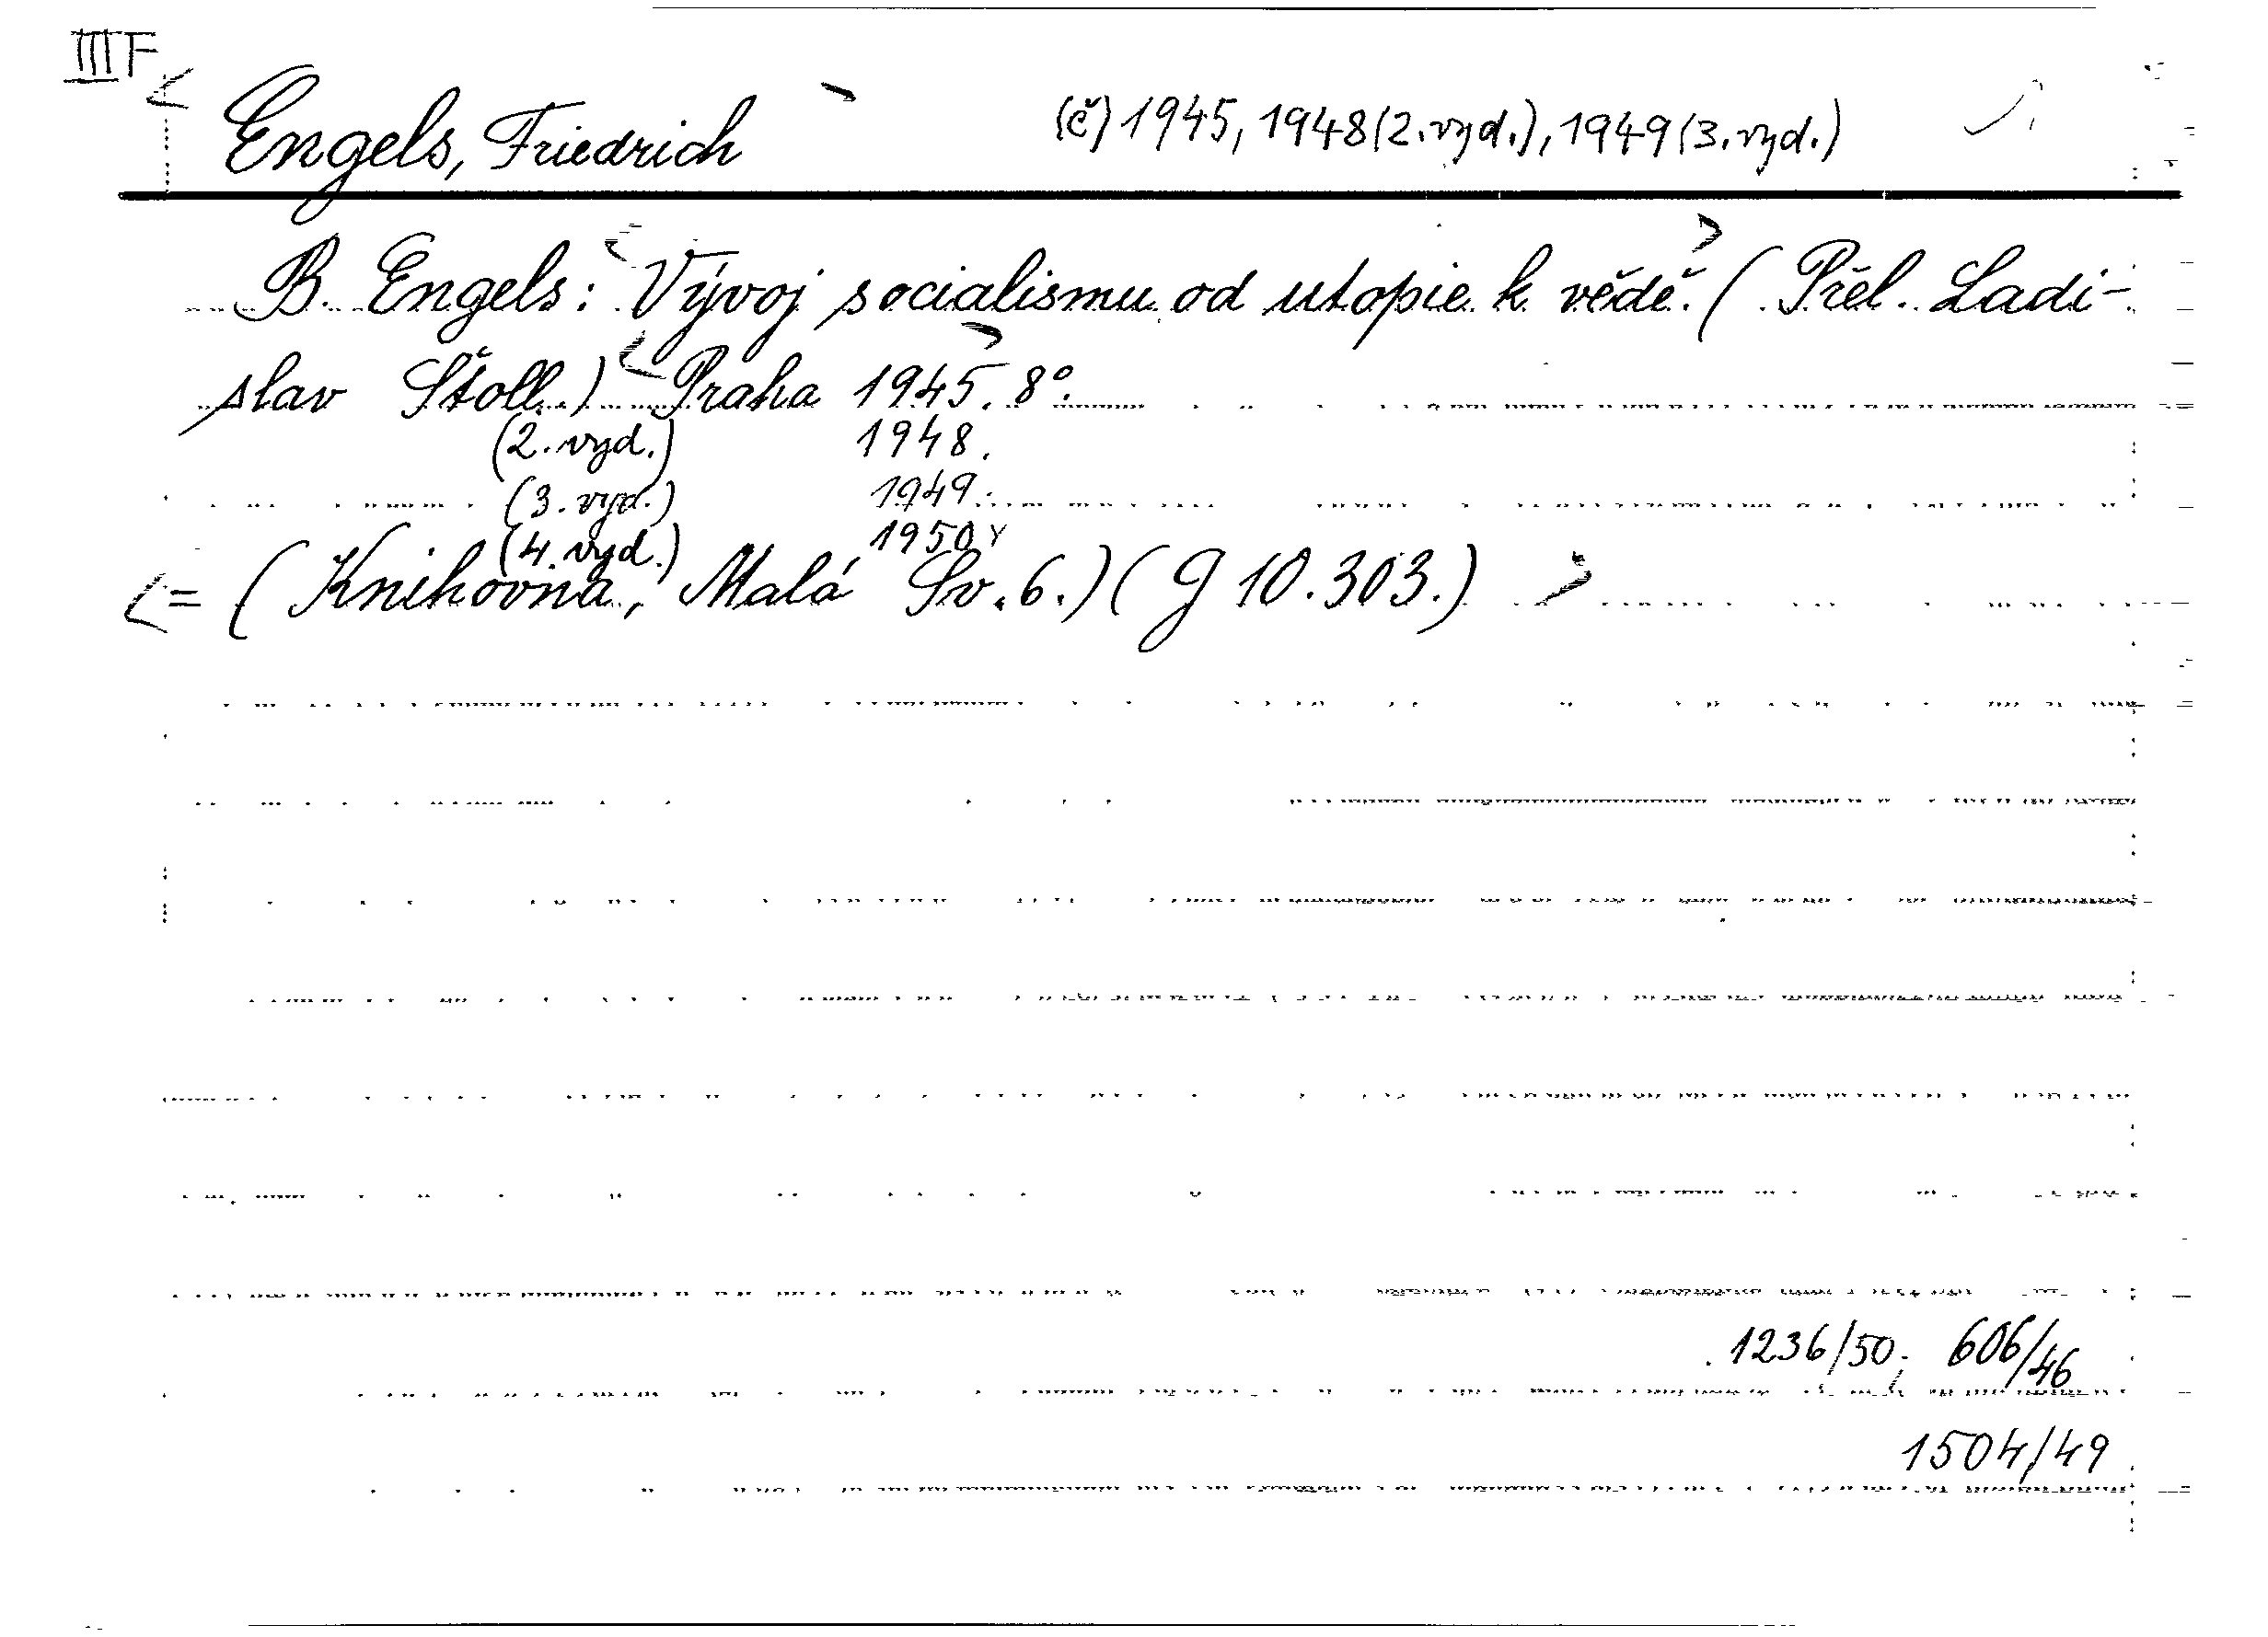 III F
Engels, Friedrich (č) 1945, 1948 (2. vyd.), 1949 (3. vyd.)
B. Engels: Vývoj socialismu od utopie k vědě. (Přel. Ladi-
slav Štoll.) Praha 1945. 8°.
(2. vyd.) 1948.
(3. vyd.) 1949.
(4. vyd.) 1950
= (Knihovna, Malá Sv. 6.) (G 10.303.)
1236/50; 606/46
1504/49